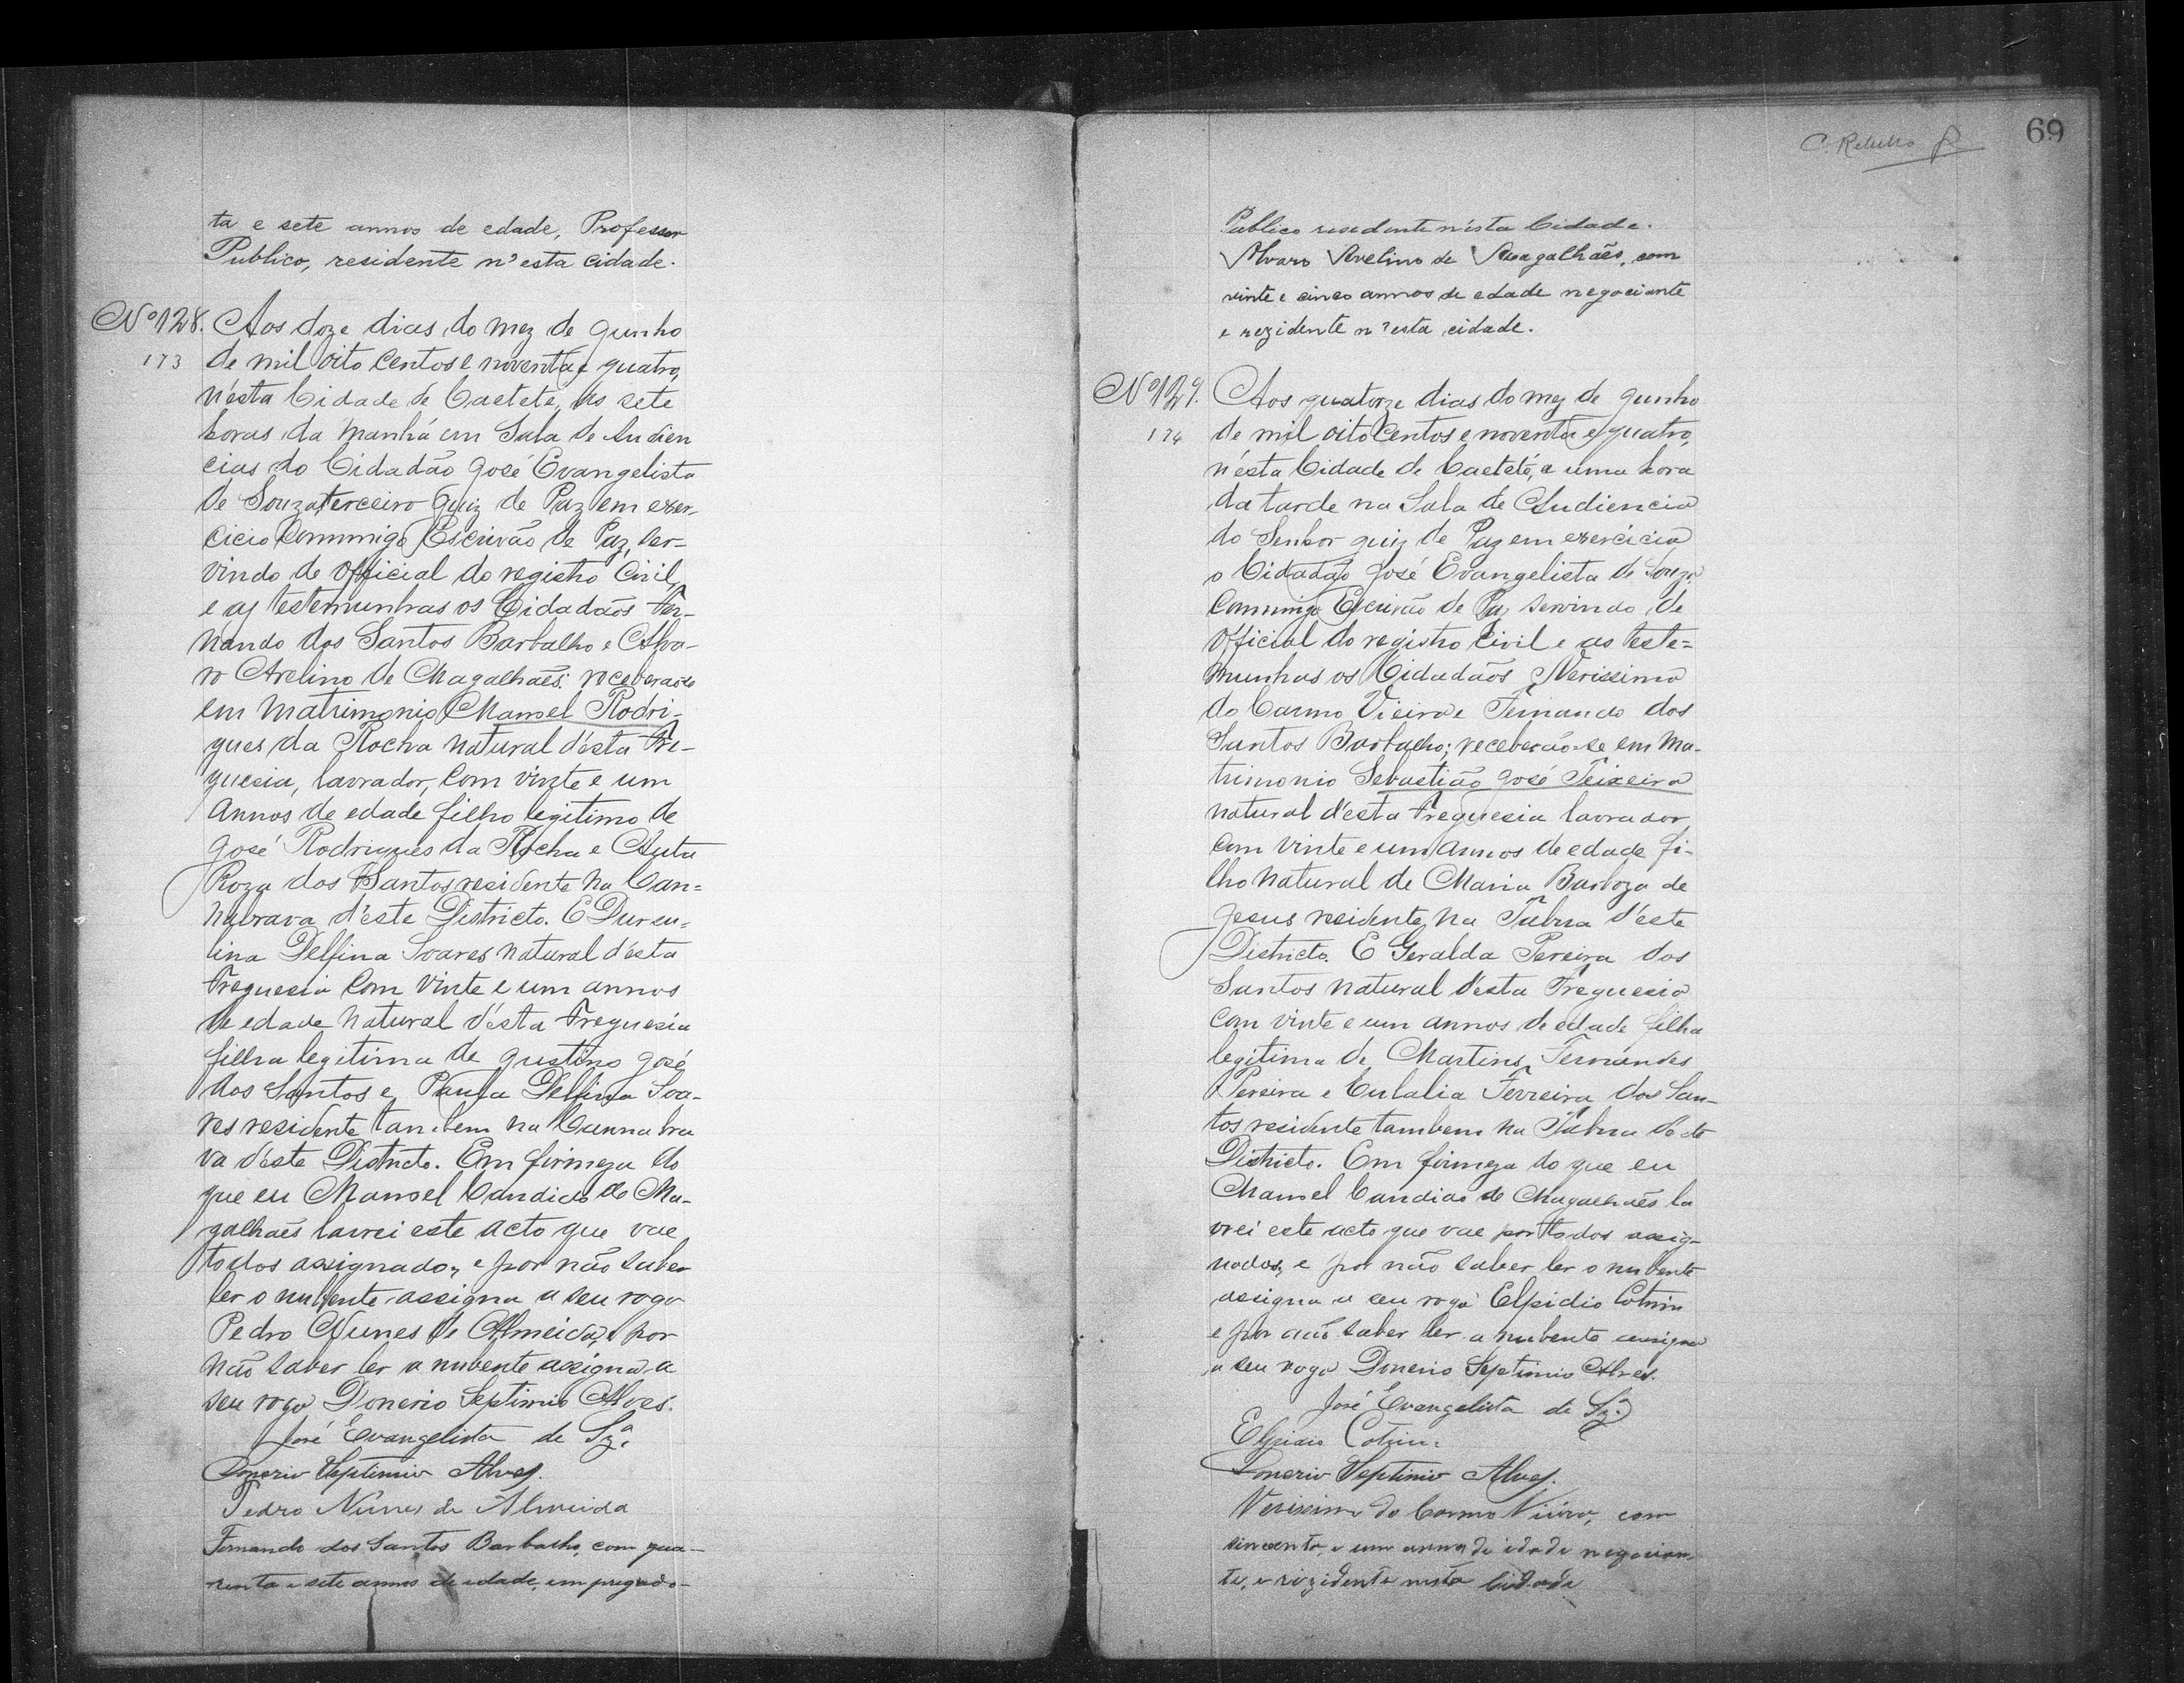 ta e sete annos de edade, Professor
Publico, residente n'esta cidade.
Nº 128. Aos doze dias do mez de Junho
173 de mil oito centos e noventa e quatro,
n'ésta Cidade de Caeteté, ás sete
horas da manhá em Sala de Audien
cias do Cidadão José Evangelista
de Souza terceiro Juiz de Paz em exer-
cicio commigo Escrivão de Paz, ser-
vindo de official do registro Civil,
e as testemunhas os Cidadãos Fer-
nando dos Santos Barbalho e Alva-
ro Avelino de Magalhaês: receberaose
em matrimonio Manoel Rodri-
gues da Rocha natural d'ésta Fre-
guesia, lavrador, com vinte e um
annos de edade filho legitimo de
José Rodrigues da Rocha e Auta
Roza dos Santos residente na Can=
nabrava d'éste Districto. E Durcu-
lina Delfina Soares natural d'ésta
Freguesia com vinte e um annos
de edade natural d'ésta Freguesia
filha legitima de Justino José
dos Santos e Paula Delfina Soa-
res residente tambem na Cannabra
va d'éste Districto. Em firmeza do
que eu Manoel Candido de Ma-
galhaês lavrei este acto que vae
todos assignado, e por não saber
ler o nubente assigna a seu rogo
Pedro Nunes de Almeida, e por
não saber ler a nubente assigna a
seu rogo Donerio Septimio Alves.
José Evangelista de Sza.
Donerio Septimio Alves.
Pedro Nunes de Almeida
Fernando dos Santos Barbalho, com qua-
renta e sete annos de edade, empregado-
C. Rebello
69
Publico residente nésta Cidade.
Alvaro Avelino de Magalhães, com
vinte e cinco annos de edade negociante
e rezidente n'esta cidade.
Nº 129. Aos quatorze dias do mez de Junho
174 de mil oito Centos e noventa e quatro,
n'ésta Cidade de Caeteté, a uma hora
da tarde na Sala de Audiencia
do Senhor Juiz de Paz em exercicio
o Cidadão José Evangelista de Souza
Commigo Escrivão de Paz servindo de
official do registro civil e as teste=
munhas os Cidadãos Verissimo
do Carmo Vieira e Fernando dos
Santos Barbalho; receberão-se em ma-
trimonio Sebastião José Teixeira
natural d'ésta Freguesia lavrador
com vinte e um annos de edade fi-
lho natural de Maria Barboza de
Jesus residente na d'éste
Districto. E Geralda Pereira dos
Santos natural d'ésta Freguesia
com vinte e um annos de edade filha
legitima de Martins Fernandes
Pereira e Eulalia Ferreira dos San-
tos residente tambem na déste
Districto. Em firmeza do que eu
Manoel Candido de Magalhaês la
vrei este acto que vae por todos assig-
nados, e por não saber ler o nubente
assigna a seu rogo Elpidio Cotrim
e por não saber ler a nubente assigna
a seu rogo Donerio Septimio Alves.
José Evangelista de Sza.
Elpidio Cotrim.
Donerio Septimio Alves.
Verissimo do Carmo Vieira, com
sincoenta, e um annos de idade negocian-
te, e rizidente nesta Cidade